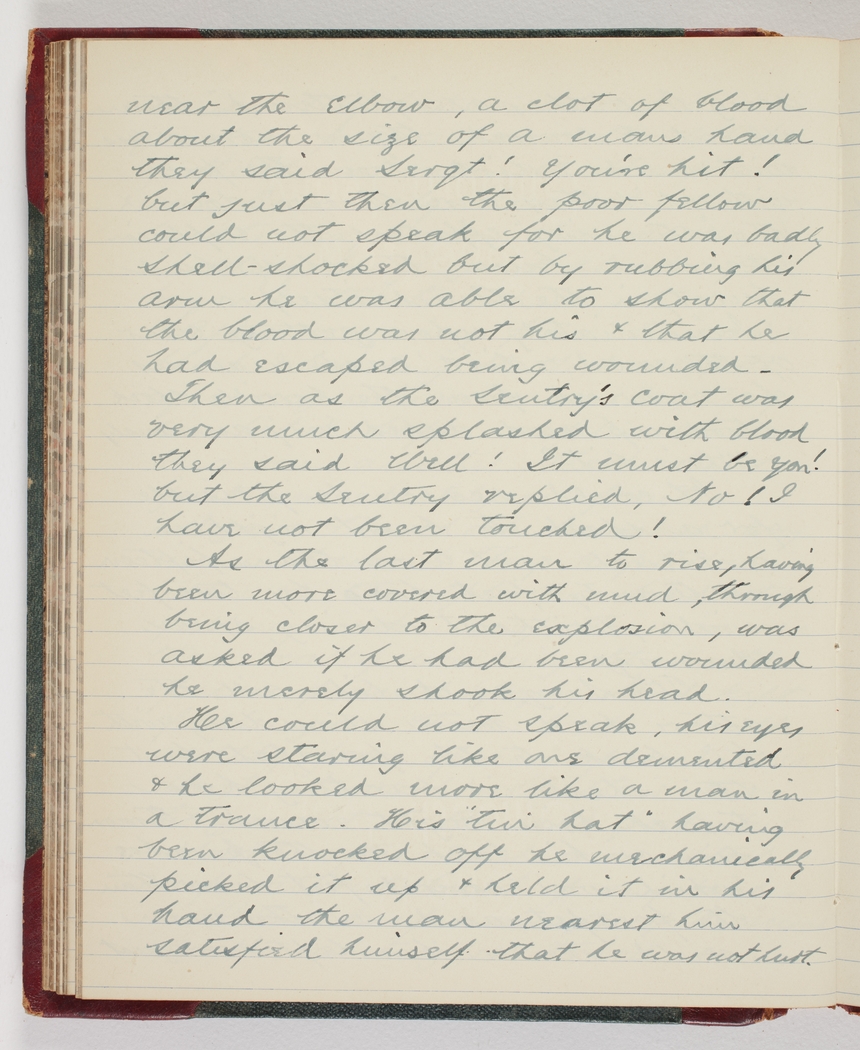 near the Elbow, a clot of blood
about the size of a mans hand
they said Sergt! You're hit!
but just then the poor fellow
could not speak for he was badly
shell-shocked but by rubbing his
arm he was able to show that
the blood was not his & that he
had escaped being wounded -
Then as the Sentry's coat was
very much splashed with blood
they said Well! It must be you!
but the Sentry replied, No! I
have not been touched!
As the last man to rise, having
been more covered with mud, through
being closer to the explosion, was
asked if he had been wounded
he merely shook his head.
He could not speak, his eyes
were staring like one demented
& he looked more like a man in
a trance. His "tin hat" having
been knocked off he mechanically
picked it up & held it in his
hand the man nearest him
satisfied himself that he was not hurt.